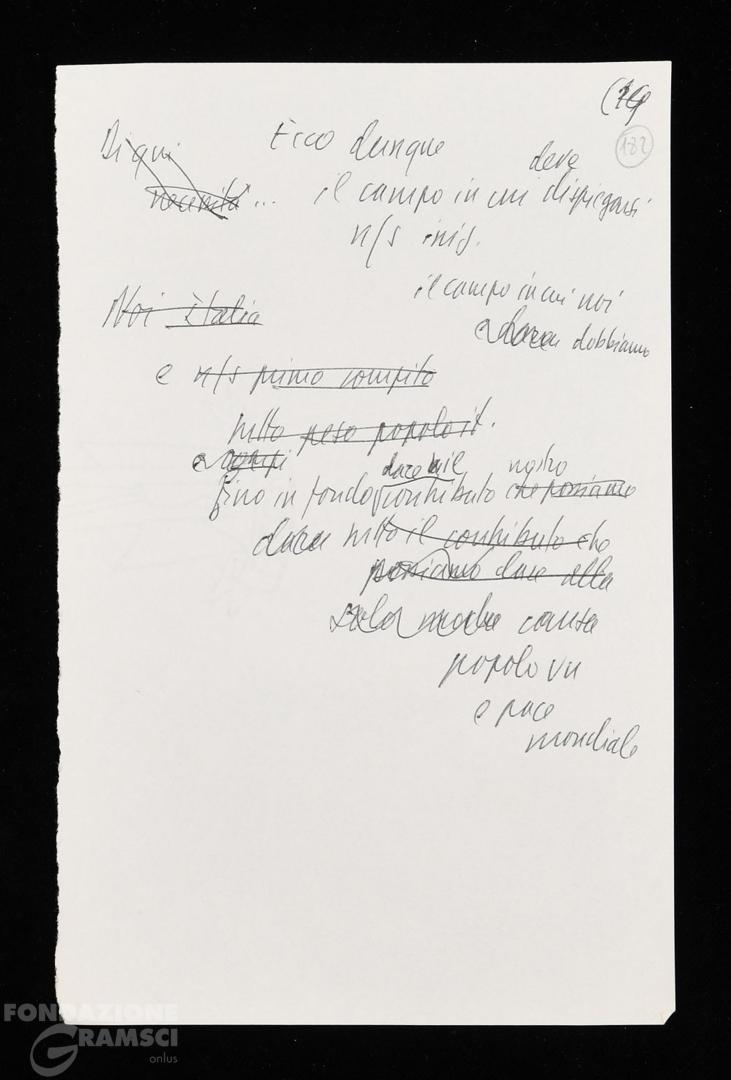 182
Di qui Ecco dunque deve
necessità... il campo in cui dispiegarsi
n/s iniz.
il campo in cui noi
dobbiamo
Noi Italia
e n/s primo compito
tutto peso popolo it.
dare il nostro
fino in fondo contributo che possiamo
dare tutto il contributo che
possiamo dare alla
causa
popolo vn
e pace
mondiale
FONDAZIONE
GRAMSCI
onlus